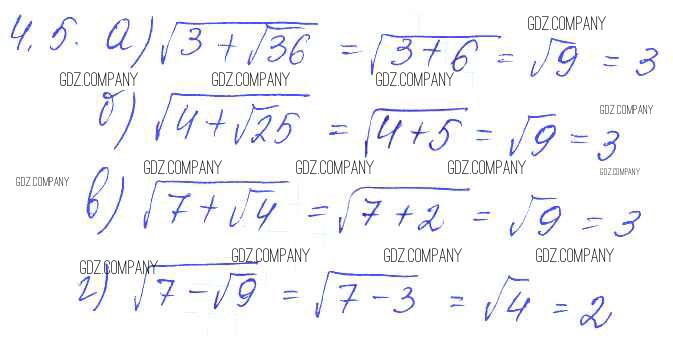 4.5. а) √(3 + √36) = √(3 + 6) = √9 = 3
GDZ.COMPANY
GDZ.COMPANY GDZ.COMPANY GDZ.COMPANY
б) √(4 + √25) = √(4 + 5) = √9 = 3
GDZ.COMPANY
GDZ.COMPANY GDZ.COMPANY GDZ.COMPANY GDZ.COMPANY
GDZ.COMPANY
в) √(7 + √4) = √(7 + 2) = √9 = 3
GDZ.COMPANY GDZ.COMPANY GDZ.COMPANY GDZ.COMPANY
г) √(7 − √9) = √(7 − 3) = √4 = 2